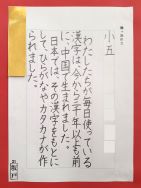 小五
わたしたちが毎日使っている
漢字は、今から三千年以上も前
に、中国で生まれました。
日本では、その漢字をもとに
して、ひらがなやカタカナが作
られました。